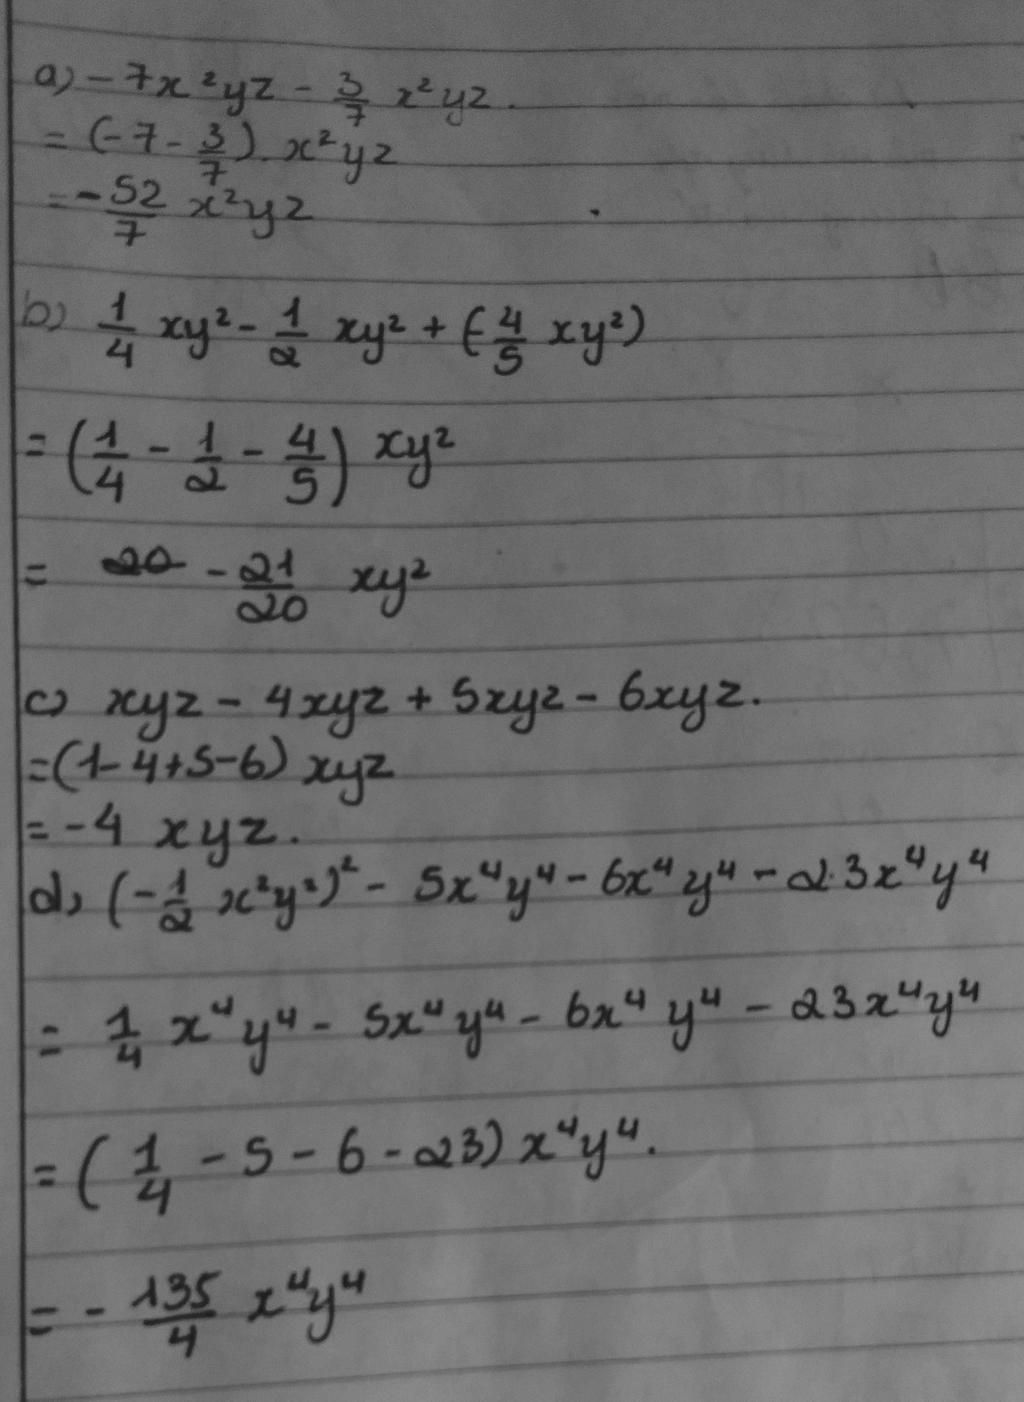 a) - 7x²yz - 3/7 x²yz.
= (-7 - 3/7). x²yz
= -52/7 x²yz
b) 1/4 xy² - 1/2 xy² + (-4/5 xy²)
= (1/4 - 1/2 - 4/5) xy²
= 20 - 21/20 xy²
c) xyz - 4xyz + 5xyz - 6xyz.
=(1-4+5-6) xyz
= -4 xyz.
d) (-1/2 x²y²)² - 5x⁴y⁴ - 6x⁴y⁴ - 2.3x⁴y⁴
= 1/4 x⁴y⁴ - 5x⁴y⁴ - 6x⁴y⁴ - 23x⁴y⁴
= (1/4 - 5 - 6 - 23) x⁴y⁴.
= - 135/4 x⁴y⁴